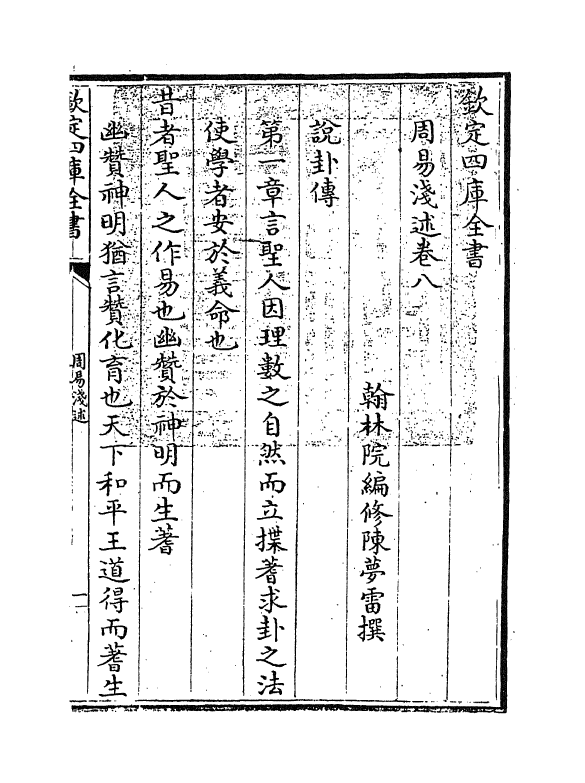 欽定四庫全書
周易淺述卷八
翰林院編修陳夢雷撰
說卦傳
第一章言聖人因理數之自然而立揲蓍求卦之法
使學者安於義命也
昔者聖人之作易也幽贊於神明而生蓍
幽贊神明猶言贊化育也天下和平王道得而蓍生
欽定四庫全書
周易淺述
一